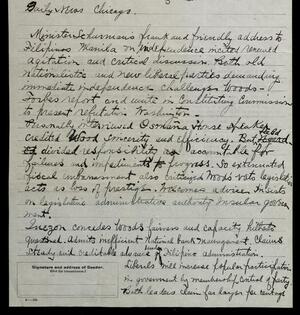 Daily News Chicago.
Minister Schurmans frank and friendly address to
Filipinos Manila on independence incited renewed
agitation and critical discussion. Both old
nationalistic and new liberal parties demanding
immediate independence challenge Woods-
Forbes report and unite in Constituting Commission
to present refutation Washington.
Personally interviewed Osmena House Speaker
credited Wood sincerity and efficiency. But
divided responsibility as accountable for
failures and impediments to progress. So extenuated
fiscal embarrassment also criticized Woods veto legislative
acts as loss of prestige. Welcomes advice. Insists
on legislative administrative authority Insular govern-
ment.
Quezon concedes Woods fairness and capacity hitherto
questioned. Admits inefficient National bank management. Claims
steady and creditable advance of Filipino administration.
Liberals will increase popular participation
in government by membership control of party
Both leaders claim far larger percentage
Signature and address of Sender.